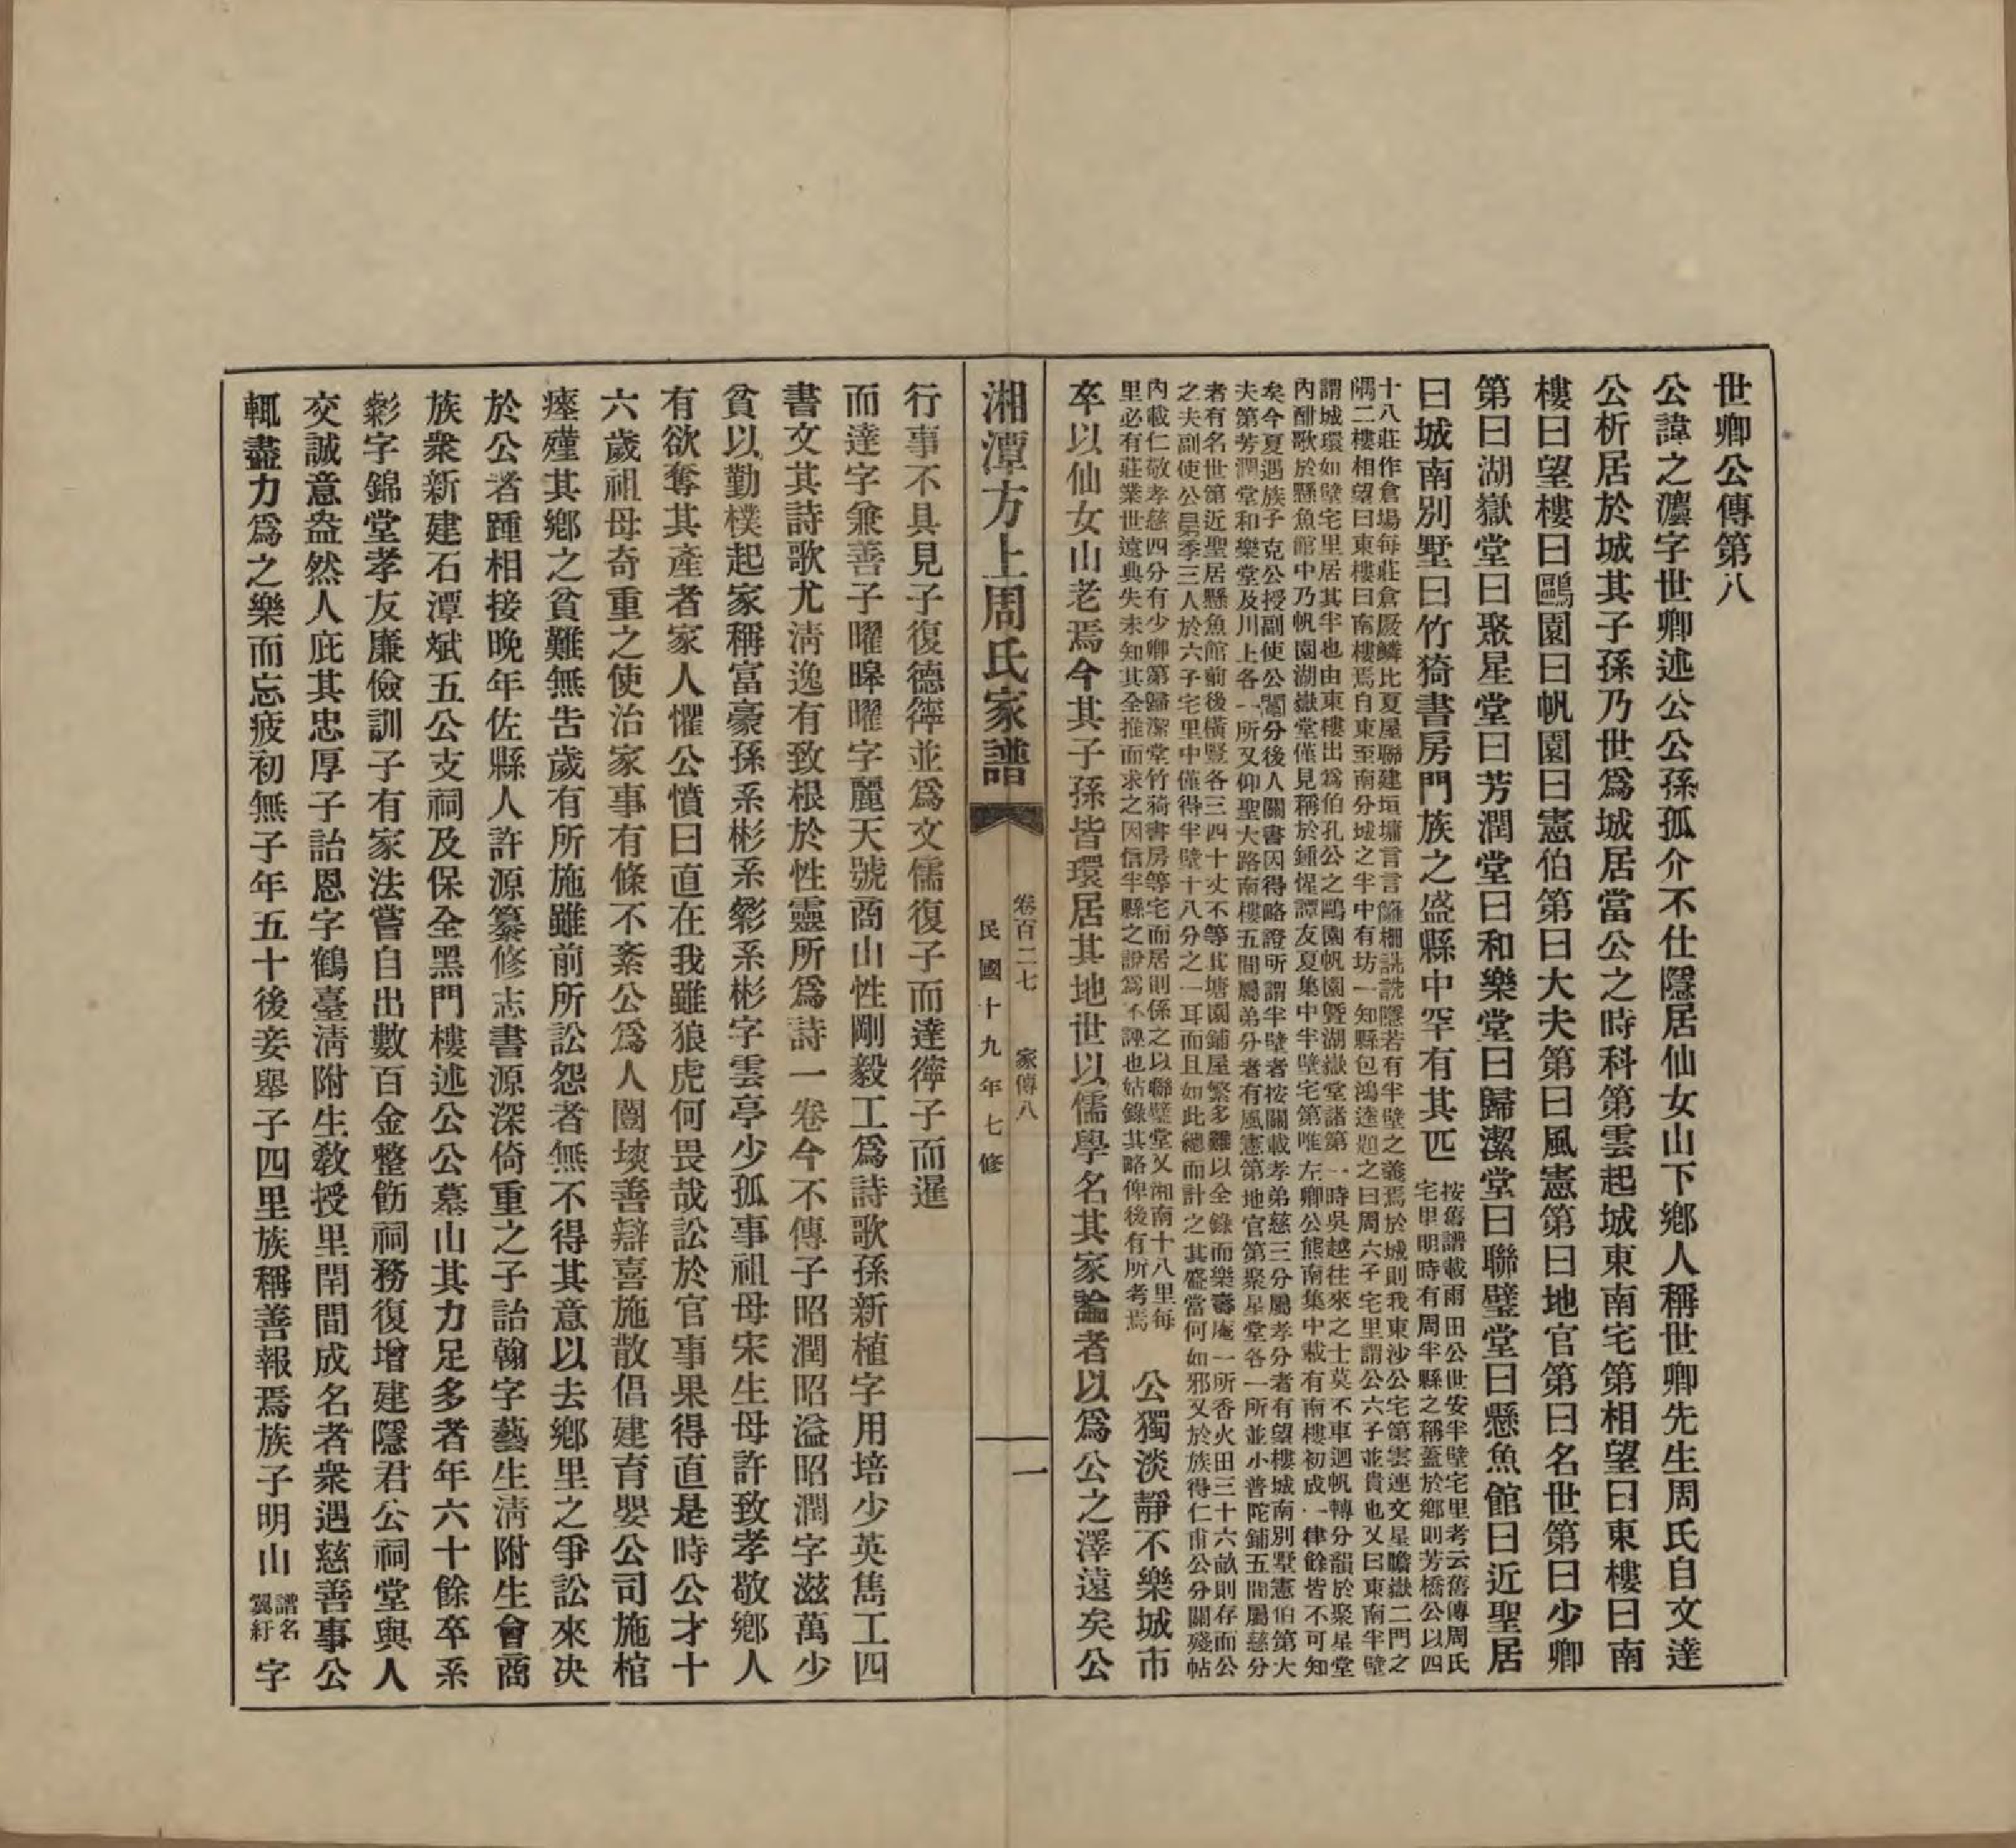 世卿公傳第八
公諱之灋字世卿述公公孫孤介不仕隱居仙女山下鄉人稱世卿先生周氏自文達
公析居於城其子孫乃世爲城居當公之時科第雲起城東南宅第相望曰東樓曰南
樓曰望樓曰鷗園曰帆園曰憲伯第曰大夫第曰風憲第曰地官第曰名世第曰少卿
第曰湖嶽堂曰聚星堂曰芳潤堂曰和樂堂曰歸潔堂曰聯璧堂曰懸魚館曰近聖居
曰城南別墅曰竹猗書房門族之盛縣中罕有其匹
按舊譜載雨田公世安半壁宅里考云舊傳周氏
宅里明時有周半縣之稱蓋於鄉則芳橋公以四
十八莊作倉場每莊倉廒鱗比夏屋聯建垣墉言言籬柵詵詵隱若有半壁之義焉於城則我東沙公宅第雲連文星瞻嶽二門之
隅二樓相望曰東樓曰南樓焉自東至南分城之半中有坊一知縣包鴻逵題之曰周六子宅里謂公六子並貴也又曰東南半壁
謂城環如壁宅里居其半也由東樓出爲伯孔公之鷗園帆園暨湖嶽堂諸第一時吳越往來之士莫不車迴帆轉分韻於聚星堂
內酣歌於懸魚館中乃帆園湖嶽堂僅見稱於鍾惺譚友夏集中半壁宅第唯左卿公熊南集中載有南樓初成一律餘皆不可知
矣今夏遇族子克公授副使公鬮分後人關書因得略證所謂半壁者按關載孝弟慈三分屬孝分者有望樓城南別墅憲伯第大
夫第芳潤堂和樂堂及川上各一所又仰聖大路南樓五間屬弟分者有風憲第地官第聚星堂各一所並小普陀鋪五間屬慈分
者有名世第近聖居懸魚館前後橫豎各三四十丈不等其塘園鋪屋繁多難以全錄而樂壽庵一所香火田三十六畝則存而公
之夫副使公昆季三人於六子宅里中僅得半壁十八分之一耳而且如此總而計之其盛當何如邪又於族得仁甫公分關殘帖
內載仁敬孝慈四分有少卿第歸潔堂竹猗書房等宅而居則係之以聯璧堂又湘南十八里每
里必有莊業世遠典失未知其全推而求之因信半縣之說爲不誣也姑錄其略俾後有所考焉
公獨淡靜不樂城市
卒以仙女山老焉今其子孫皆環居其地世以儒學名其家論者以爲公之澤遠矣公
湘潭方上周氏家譜
卷百二七 家傳八
民國十九年七修
一
行事不具見子復德㣮並爲文儒復子而達㣮子而暹
而達字兼善子曜暤曜字麗天號商山性剛毅工爲詩歌孫新植字用培少英雋工四
書文其詩歌尤淸逸有致根於性靈所爲詩一卷今不傳子昭潤昭溢昭潤字滋萬少
貧以勤樸起家稱富豪孫系彬系彣系彬字雲亭少孤事祖母宋生母許致孝敬鄉人
有欲奪其產者家人懼公憤曰直在我雖狼虎何畏哉訟於官事果得直是時公才十
六歲祖母奇重之使治家事有條不紊公爲人闓塽善辯喜施散倡建育嬰公司施棺
瘞殣其鄉之貧難無告歲有所施雖前所訟怨者無不得其意以去鄉里之爭訟來决
於公者踵相接晚年佐縣人許源纂修志書源深倚重之子詒翰字藝生淸附生會商
族衆新建石潭斌五公支祠及保全黑門樓述公公墓山其力足多者年六十餘卒系
彣字錦堂孝友廉儉訓子有家法嘗自出數百金整飭祠務復增建隱君公祠堂與人
交誠意盎然人庇其忠厚子詒恩字鶴臺淸附生敎授里閈間成名者衆遇慈善事公
輒盡力爲之樂而忘疲初無子年五十後妾舉子四里族稱善報焉族子明山
譜名
翼紆
字